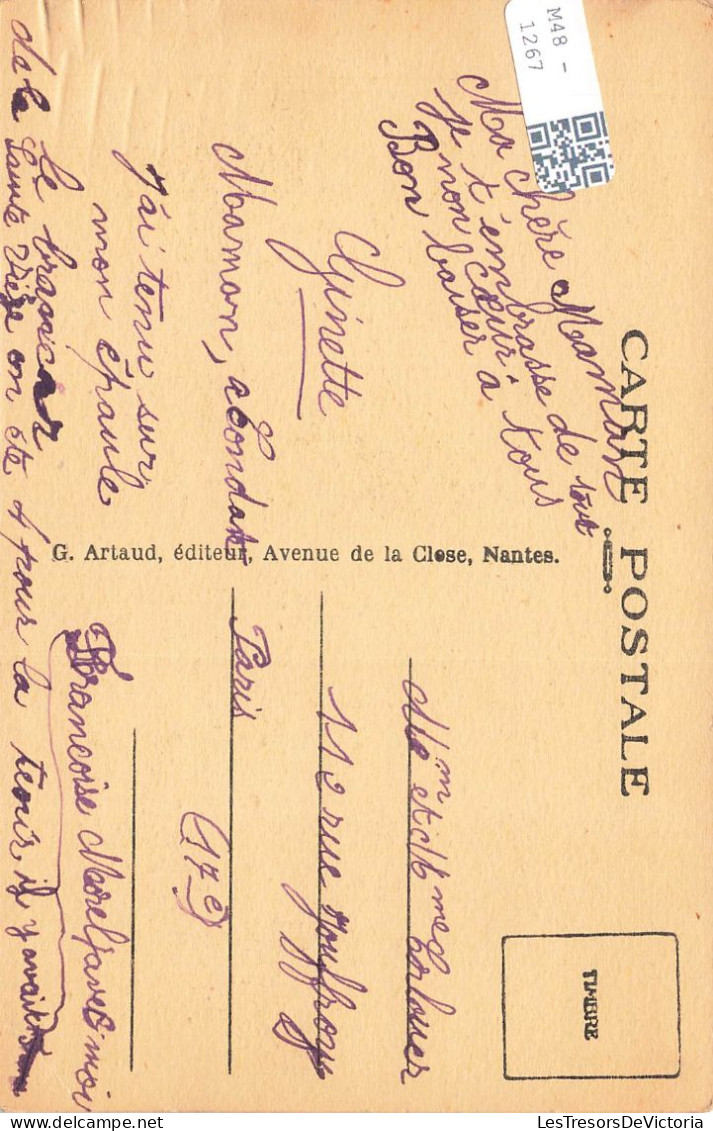 M48 -
1267
CARTE POSTALE
Ma Chère Maman
je t'embrasse de tout
mon cœur.
Bon baiser à tous
Ginette
Maman,
j'ai tenu sur
mon épaule
le brancar
de la Sainte Vierge on été 4 pour la tenir, il y avait
Francoise Morel avec moi
G. Artaud, éditeur, Avenue de la Close, Nantes.
TIMBRE
et Mme
112 rue Jouffroy
Paris
(17e)
LesTresorsDeVictoria